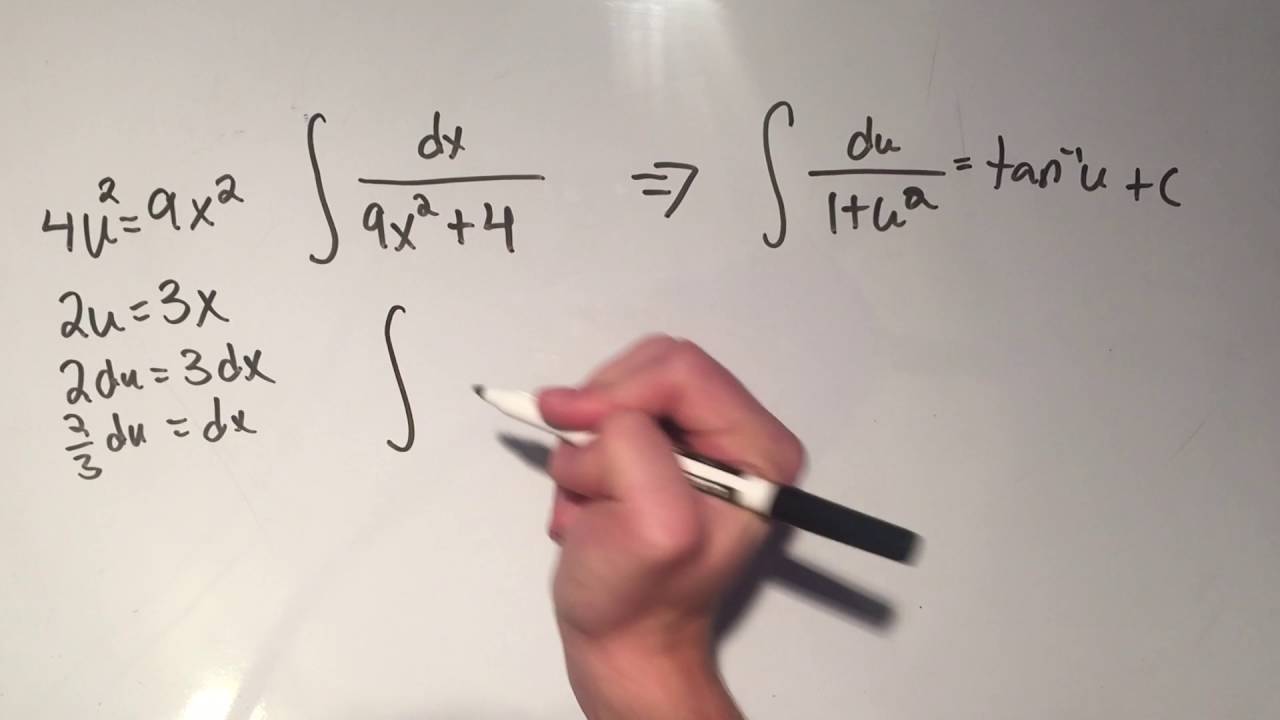 4u²=9x² ∫ dx/(9x²+4) ⇒ ∫ du/(1+u²) = tan⁻¹u +c
2u=3x
2du=3dx
2/3 du = dx
∫